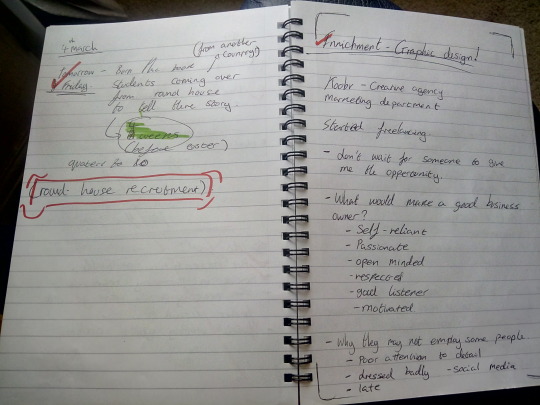 7th March
(from another
country)
Tomorrow -
Friday
students coming over
from round house
to tell there story
(before easter)
quater to 10
(round-house recrutment)
Enrichment - Graphic design!
- Creative agency
marketing department
Started freelancing
- don't wait for someone to give
me the opportunity.
- What would make a good business
owner?
- Self-reliant
- Passionate
- open minded
- respected
- good listener
- motivated
- Why they may not employ some people
- Poor attention to detail
- dressed badly - social media
- late